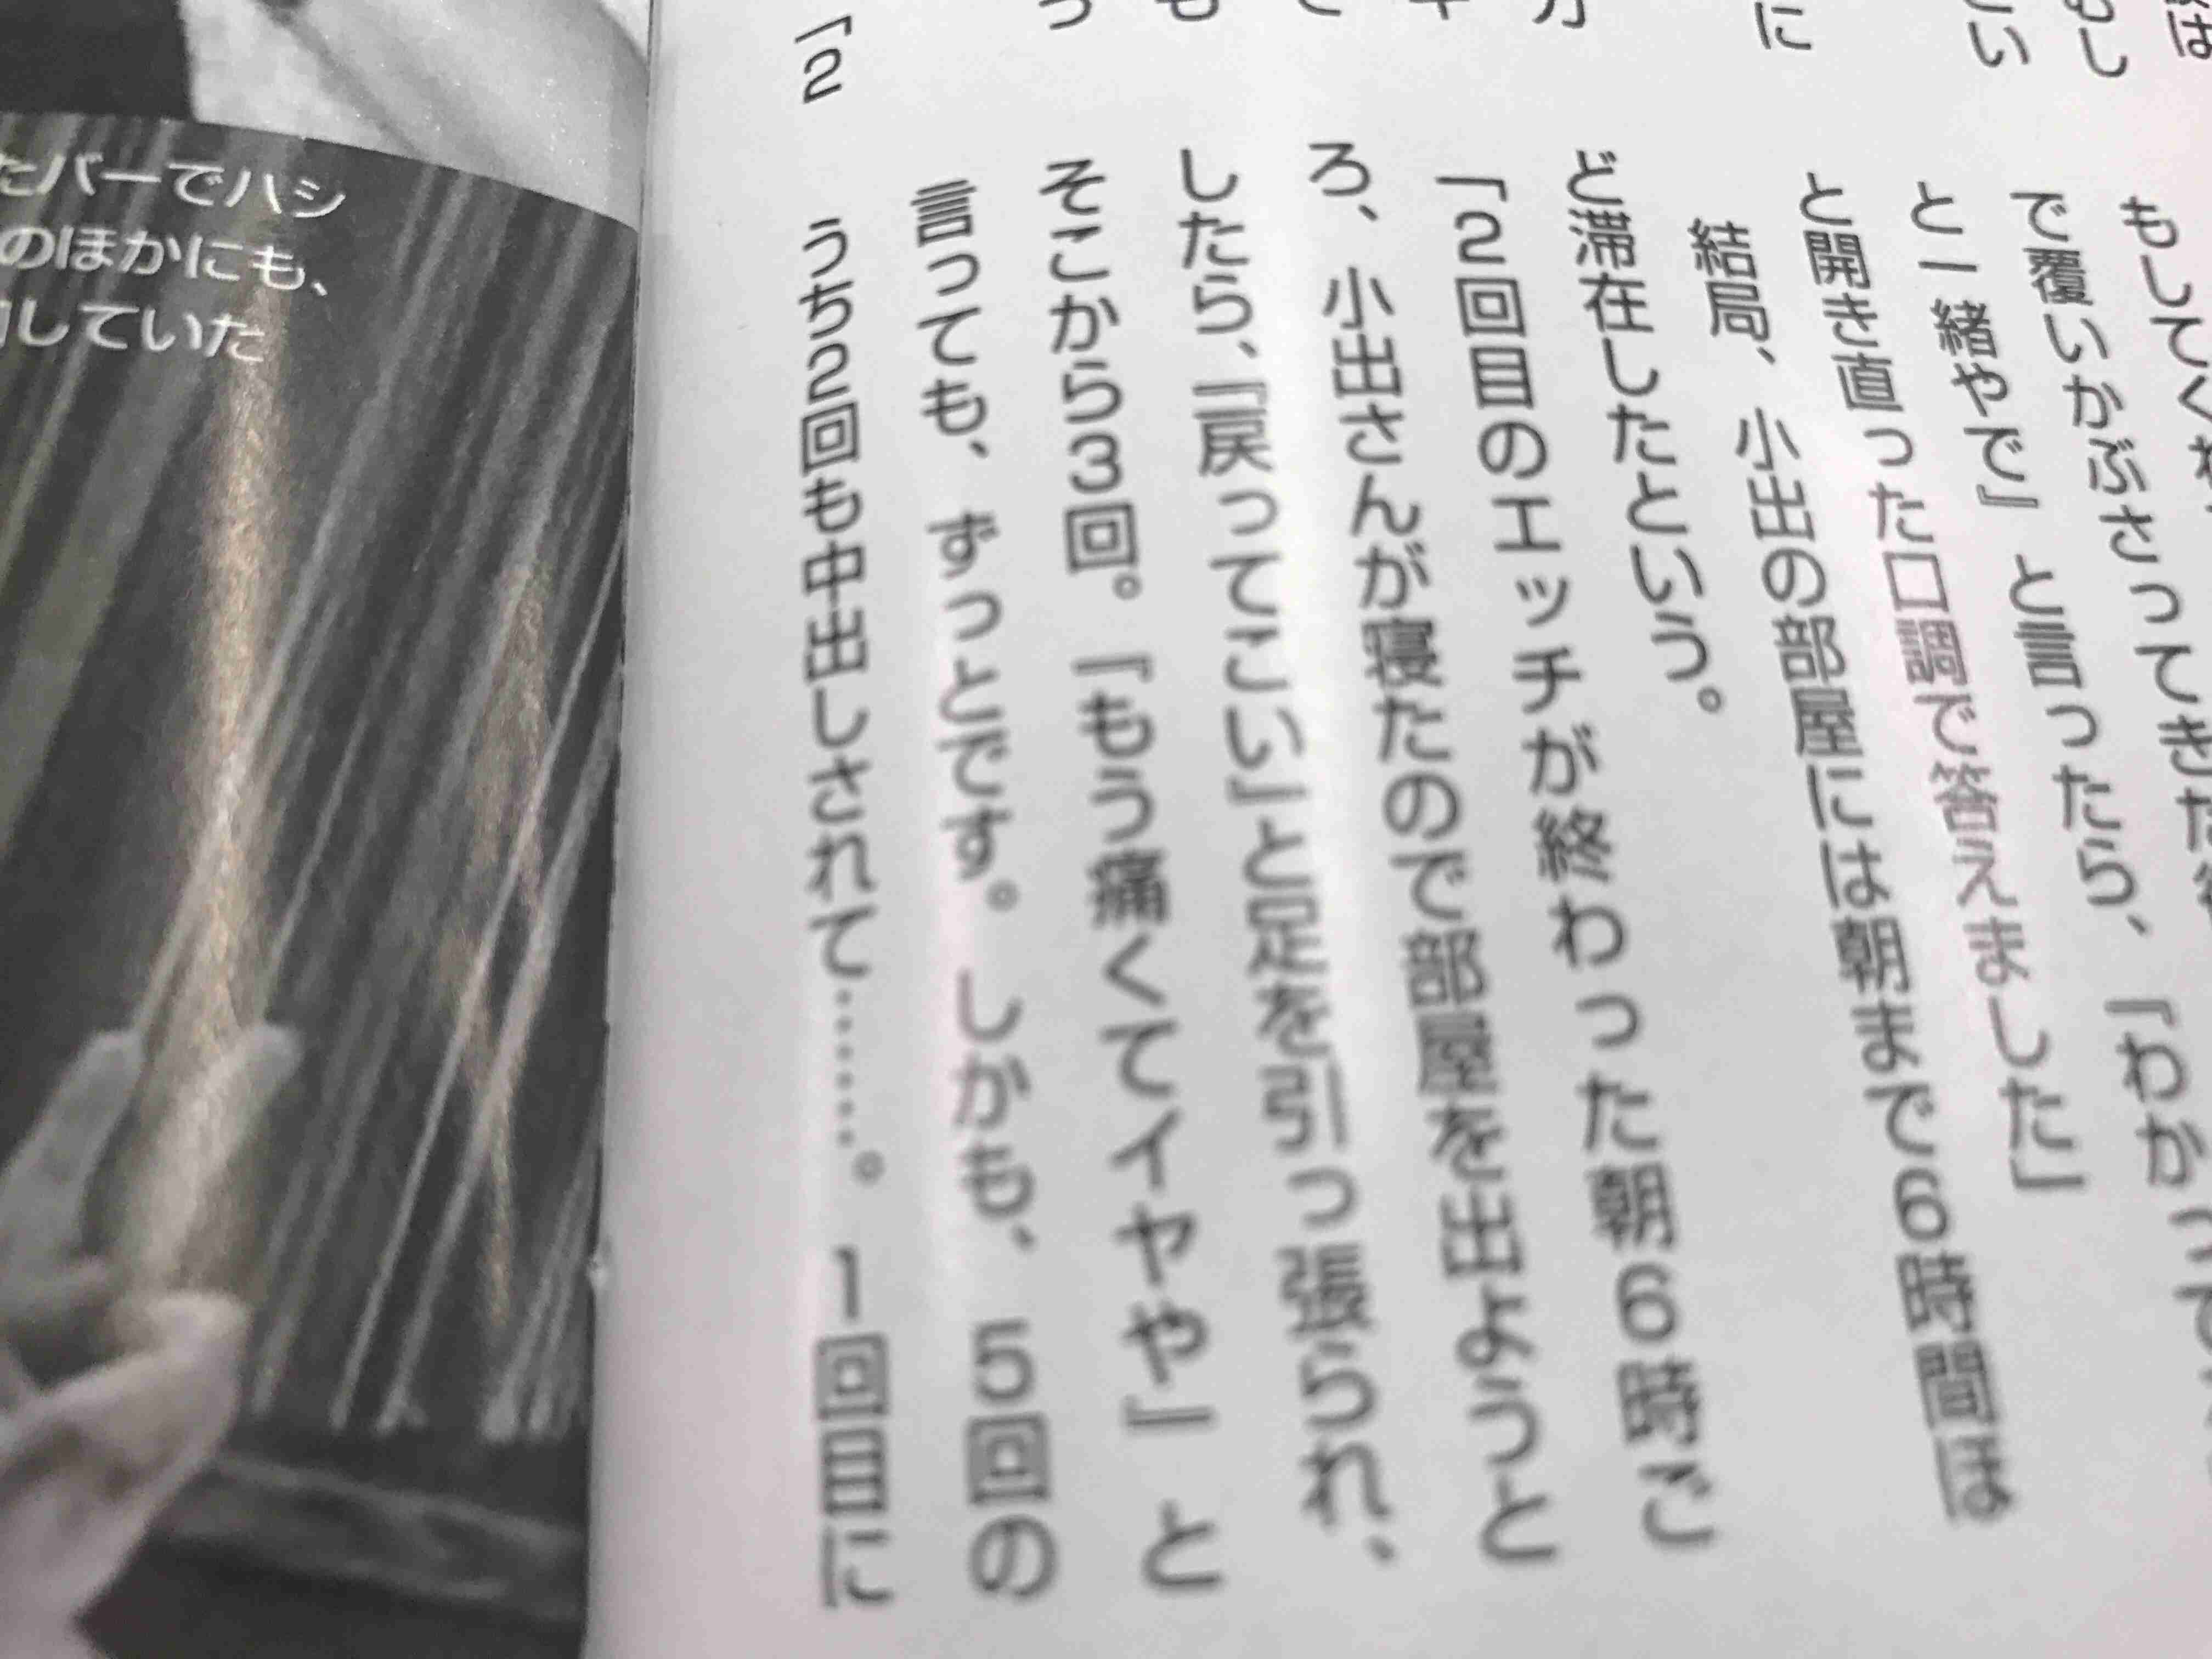 もしてく
で覆いかぶさってきた
と一緒やで』と言ったら、『わかっ
と開き直った口調で答えました」
結局、小出の部屋には朝まで6時間ほ
ど滞在したという。
「2回目のエッチが終わった朝6時ご
ろ、小出さんが寝たので部屋を出ようと
したら、『戻ってこい』と足を引っ張られ、
そこから3回。『もう痛くてイヤや』と
言っても、ずっとです。しかも、5回の
うち2回も中出しされて……。1回目に
「2
たバーでハシ
のほかにも、
していた